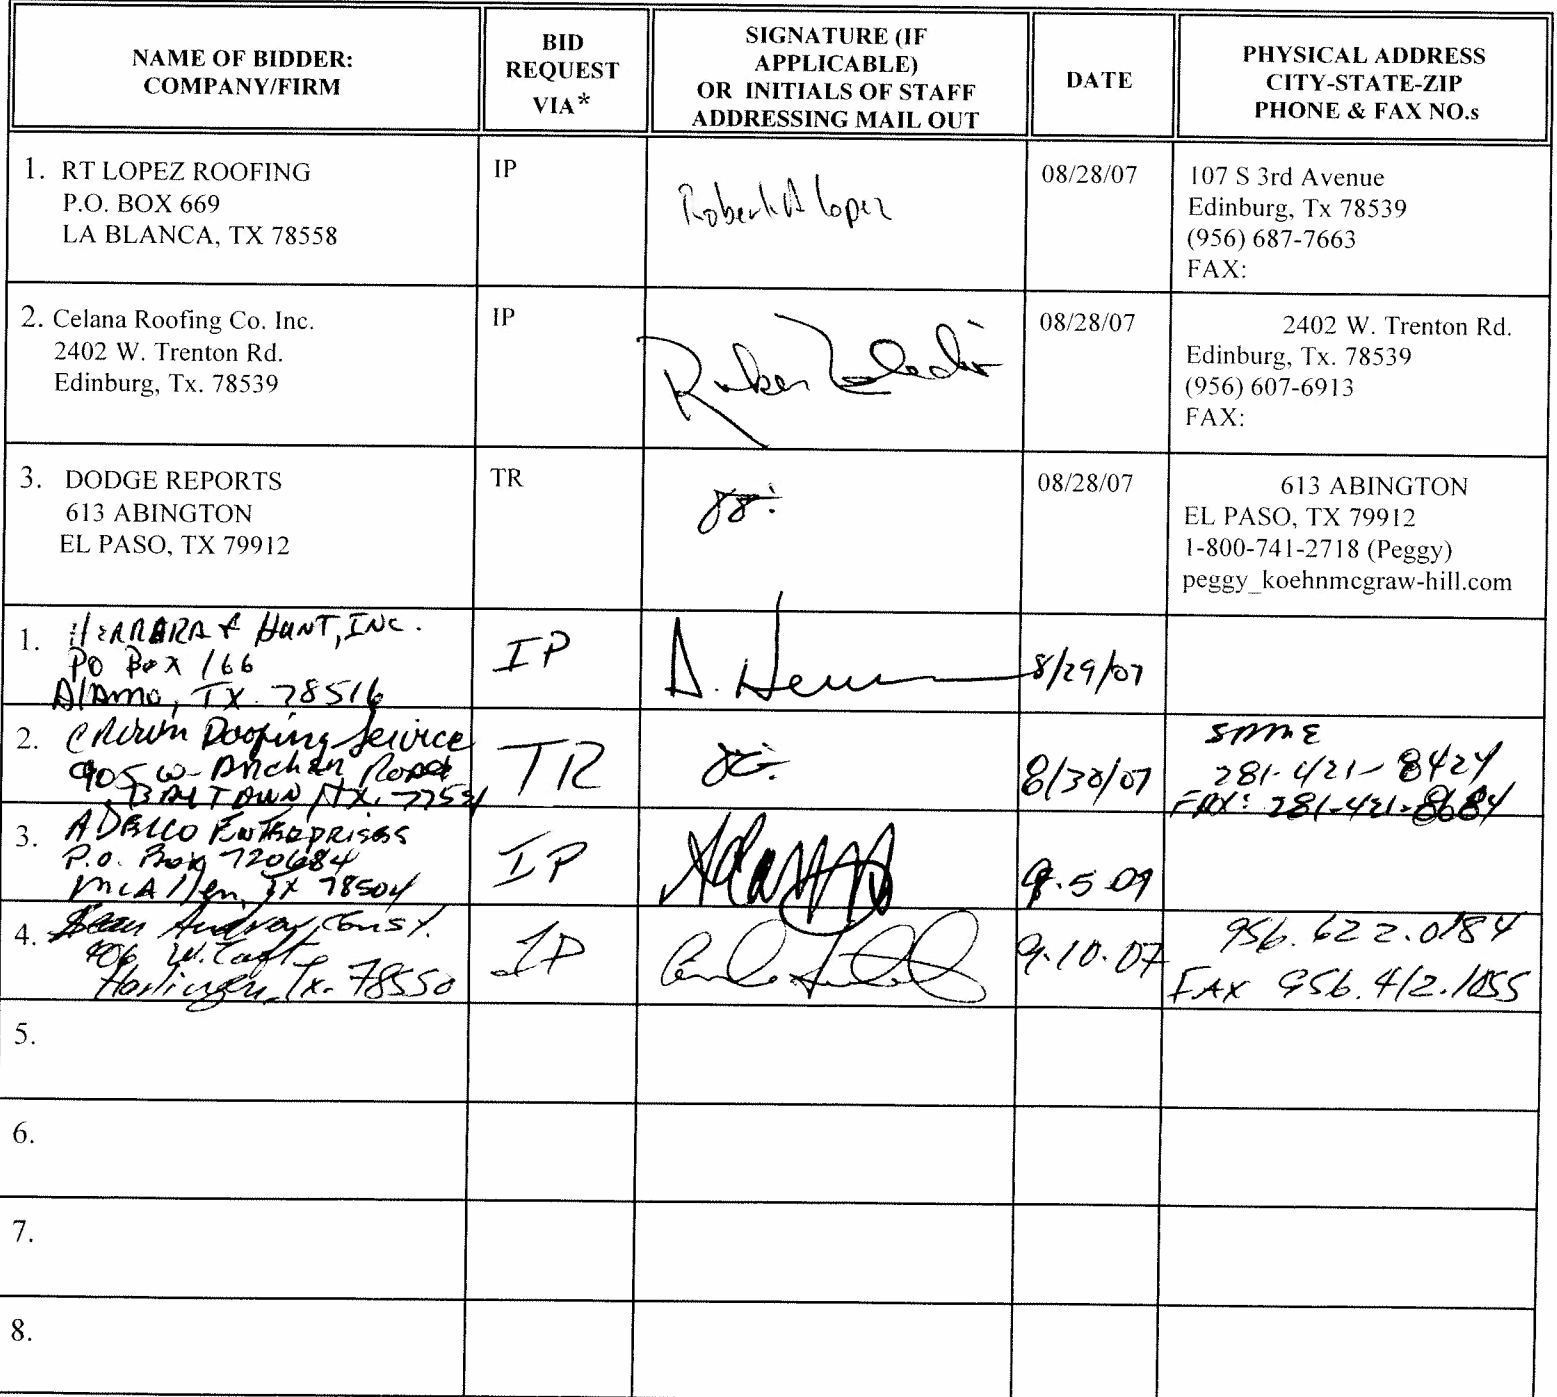 NAME OF BIDDER:
COMPANY/FIRM
BID
REQUEST
VIA*
SIGNATURE (IF
APPLICABLE)
OR INITIALS OF STAFF
ADDRESSING MAIL OUT
DATE
PHYSICAL ADDRESS
CITY-STATE-ZIP
PHONE & FAX NO.s
1. RT LOPEZ ROOFING
P.O. BOX 669
LA BLANCA, TX 78558
IP
Robert A Lopez
08/28/07
107 S 3rd Avenue
Edinburg, Tx 78539
(956) 687-7663
FAX:
2. Celana Roofing Co. Inc.
2402 W. Trenton Rd.
Edinburg, Tx. 78539
IP
Ruben
08/28/07
2402 W. Trenton Rd.
Edinburg, Tx. 78539
(956) 607-6913
FAX:
3. DODGE REPORTS
613 ABINGTON
EL PASO, TX 79912
TR
08/28/07
613 ABINGTON
EL PASO, TX 79912
1-800-741-2718 (Peggy)
peggy_koehnmcgraw-hill.com
1. HERRARA & HUNT, INC.
PO Box 166
Alamo, TX. 78516
IP
8/29/07
2. Crown Roofing Service
905 W. Road
BAYTOWN, TX.
TR
8/30/07
SAME
281-421-8424
FAX: 281-421-8684
3. ENTERPRISES
P.O. Box 720684
McAllen, TX 78504
IP
4. Const.
906 W.
Harlingen, Tx. 78550
IP
9.10.07
956.622.0184
FAX 956.412.1055
5.
6.
7.
8.